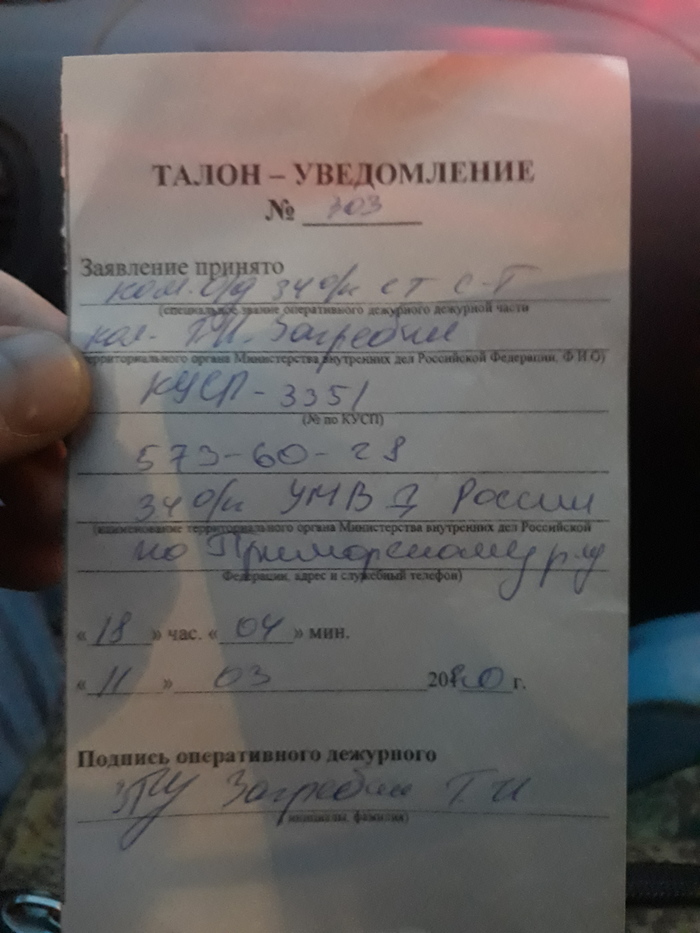 ТАЛОН – УВЕДОМЛЕНИЕ
№ 303
Заявление принято
ком. о/д 34 о/п ст с-т
(специальное звание оперативного дежурного дежурной части
пол. Т.И. Загребин
территориального органа Министерства внутренних дел Российской Федерации, Ф И О)
КУСП - 3351
(№ по КУСП)
573-60-28
34 о/п УМВД России
(наименование территориального органа Министерства внутренних дел Российской
по Приморскому р-ну
Федерации, адрес и служебный телефон)
« 18 » час. « 04 » мин.
« 11 » 03 2020 г.
Подпись оперативного дежурного
Загребин Т И
(инициалы, фамилия)